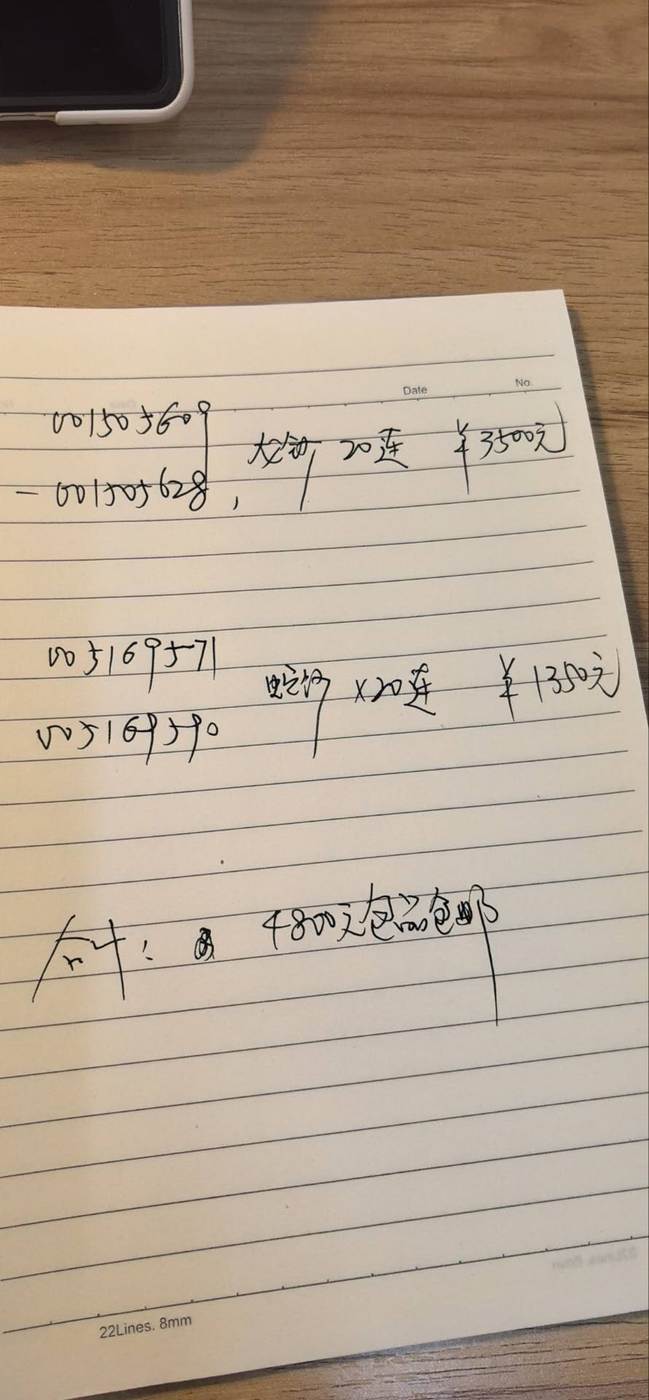 Date No.
001505609
— 001505628, 龙钞 20连 ¥3500元
005169571
蛇钞 ×20连 ¥1350元
005169590
合计: 4800元包品包邮
22Lines. 8mm